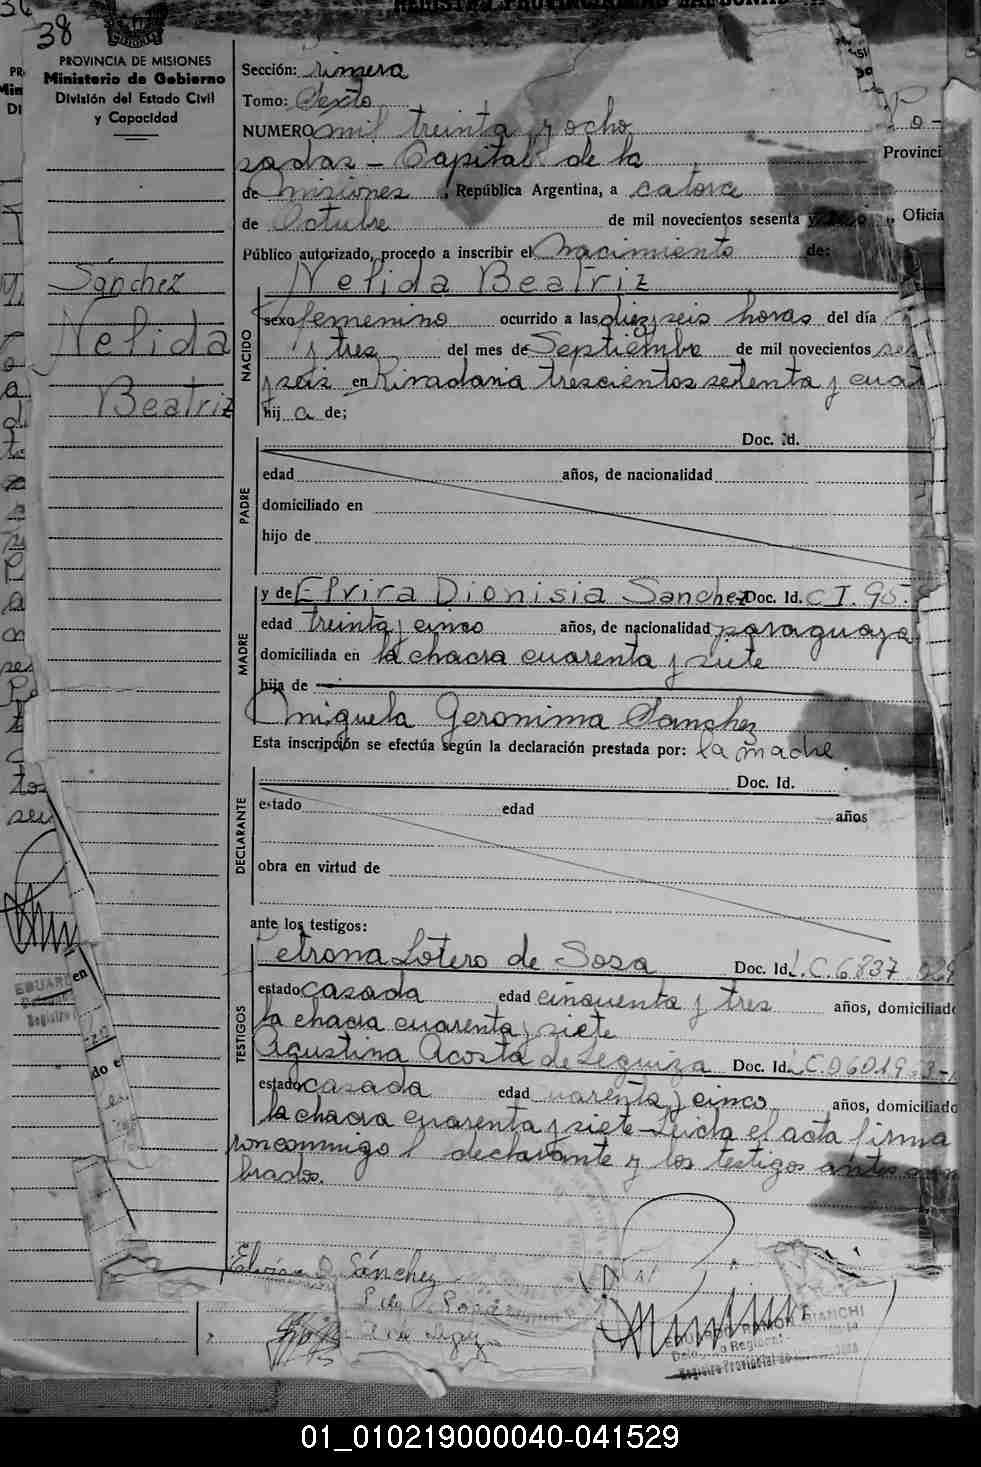 38
PROVINCIA DE MISIONES
Ministerio de Gobierno
División del Estado Civil
y Capacidad
Sánchez
Nelida
Beatriz
Sección: rimera
Tomo: Sexto
NUMERO mil treinta y ocho Po-
sadas - Capital de la Provinci
de Misiones, República Argentina, a catorce
de Octubre de mil novecientos sesenta y Oficia
Público autorizado, procedo a inscribir el Nacimiento de:
Nelida Beatriz
NACIDO
sexo femenino ocurrido a las diez y seis horas del día
y tres del mes de Septiembre de mil novecientos ses
y seis en Rivadavia trescientos setenta y cuat
hij a de;
PADRE
Doc. Id.
edad años, de nacionalidad
domiciliado en
hijo de
MADRE
y de Elvira Dionisia Sanchez Doc. Id. C I. 95.
edad treinta y cinco años, de nacionalidad paraguaya
domiciliada en la chacra cuarenta y siete
hija de
Miguela Geronima Sanchez
Esta inscripción se efectúa según la declaración prestada por: la madre
DECLARANTE
Doc. Id.
estado edad años
obra en virtud de
ante los testigos:
TESTIGOS
Petrona Lotero de Sosa Doc. Id. L.C. 6.837.
estado casada edad cincuenta y tres años, domiciliado
la chacra cuarenta y siete
Agustina Acosta de Leguiza Doc. Id.
estado casada edad uarenta y cinco años, domiciliado
la chacra cuarenta y siete - Leida el acta firma
ron conmigo l declarante y los testigos antes
brados.
Elvira D Sánchez
EDUARDO RAMON BIANCHI
Registro Provincial de
01_010219000040-041529